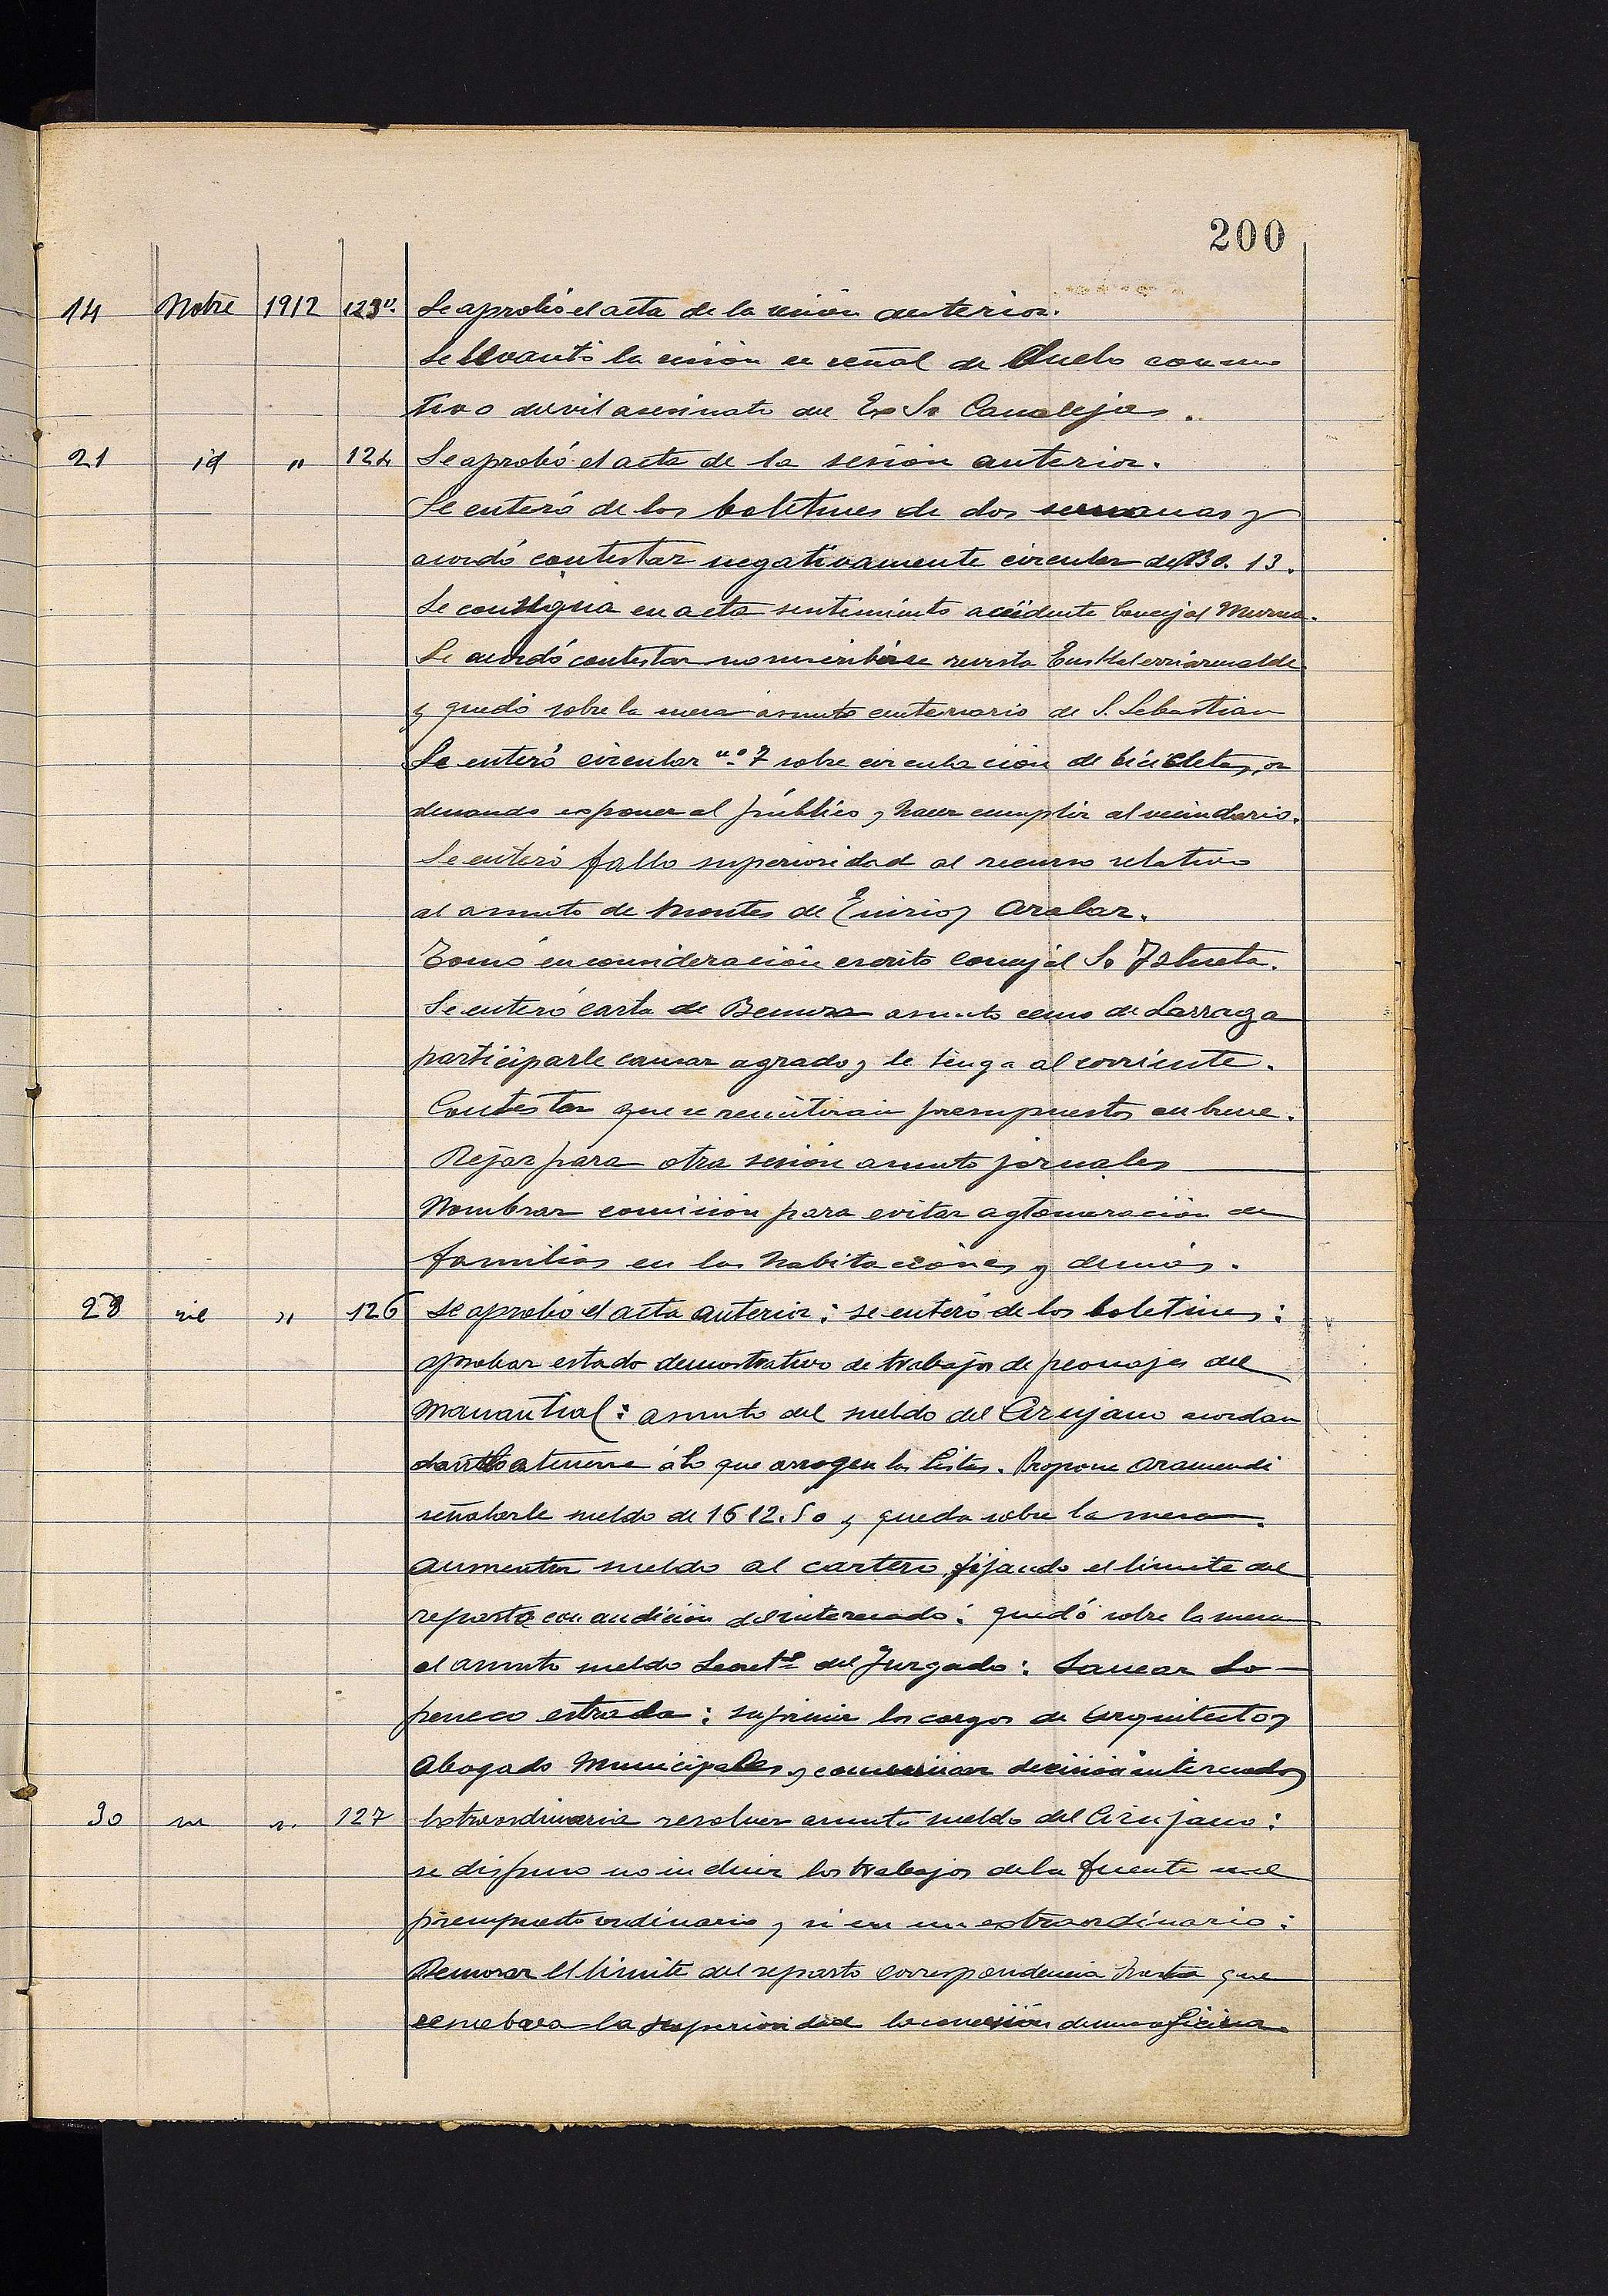 200
14 Nobre 1912 123v. Se aprobó el acta de la sesión anterior.
Se llevantó la sesión en señal de Duelo con mo
tivo del vil asesinato del Ex Sr Canalejas.
21 id " 124 Se aprobó el acta de la sesión anterior.
Se enteró de los boletines de dos semanas y
acordó contestar negativamente circular del B.O. 13.
Se consigna en acta sentimiento accidente Concejal
Se acordó contestar no suscribirse revista Euskalerriarenalde
y quedó sobre la mesa asunto centenario de S. Sebastian
Se enteró circular nº 7 sobre circulación de bicicletas, or
denando esponer al público y hacer cumplir al vecindario.
Se enteró fallo superioridad al recurso relativo
al asunto de Montes de Enirio y Aralar.
Tomó en consideración escrito concejal Sr Iztueta.
Se enteró carta de asunto censo de Larraga
participarle causar agrado y le tenga al corriente.
Contestar que se remitirán presupuestos en breve.
Dejar para otra sesión asunto jornales
Nombrar comisión para evitar aglomeración de
familias en las habitaciones y demás.
28 id " 126 Se aprobó el acta anterior: se enteró de los boletines:
aprobar estado demostrativo de trabajos de peonajes del
Manantial: asunto del sueldo del Cirujano acordan
atenerse á lo que arrogen las listas. Propone Aramendi
señalarle sueldo de 1612.50 y queda sobre la mesa.
Aumentar sueldo al cartero, fijando el límite del
reparto con audición del interesado: quedó sobre la mesa
el asunto sueldo Secretº del Juzgado: Sanear Lo-
peneco estrada: suprimir los cargos de Arquitecto y
Abogado Municipales, y comunicar decisión interesados
30 " 127 Extraordinaria resolver asunto sueldo del Cirujano:
se dispuso no incluir los trabajos de la fuente en el
presupuesto ordinario y si en un extraordinario:
Demorar el límite del reparto correspondencia hasta que
la superioridad la concesión de una oficina